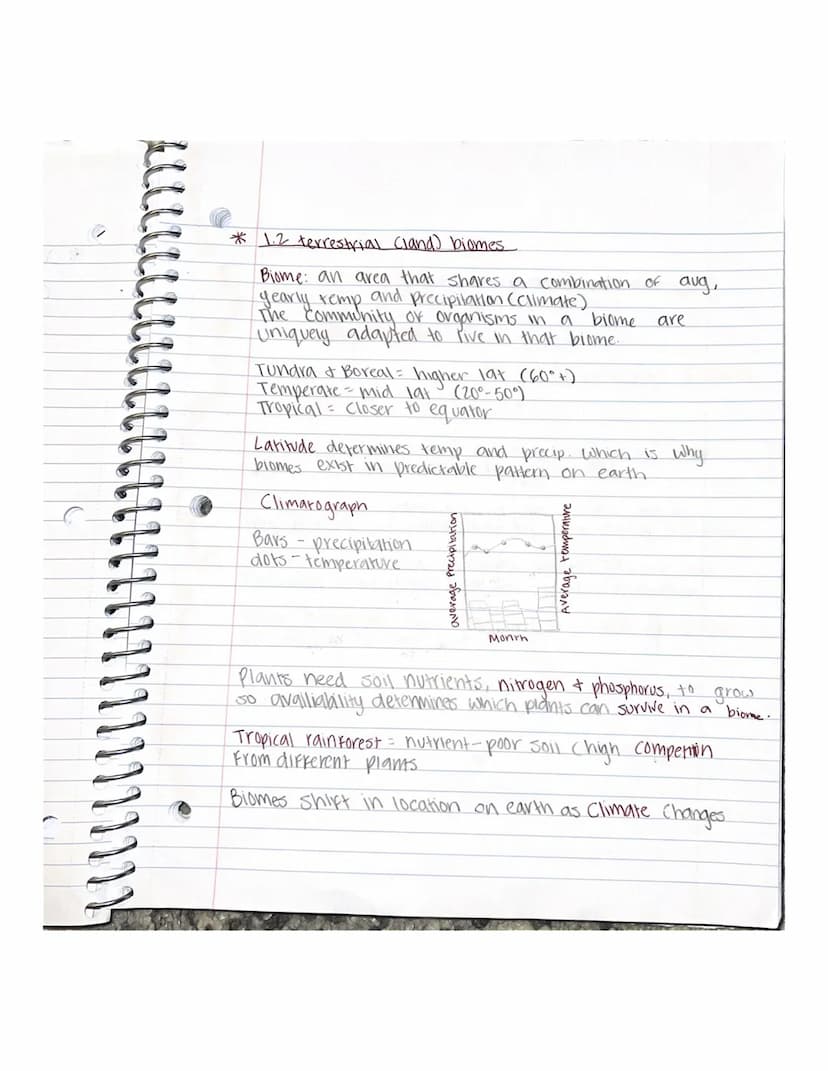 * 1.2 terrestrial (land) biomes
Biome: an area that shares a combination of aug,
yearly temp and precipitation (climate)
The community of organisms in a biome are
uniquely adapted to live in that biome.
Tundra & Boreal = higher lat (60°+)
Temperate = mid lat (20°-50°)
Tropical = closer to equator
Latitude determines temp and precip. which is why
biomes exist in predictable pattern on earth
Climatograph
Bars - precipitation
dots - temperature
average precipitation
Average temperature
Month
Plants need soil nutrients, nitrogen & phosphorus, to grow
so availiability determines which plants can survive in a biome.
Tropical rainforest = nutrient-poor soil (high competition
from different plants
Biomes shift in location on earth as climate changes